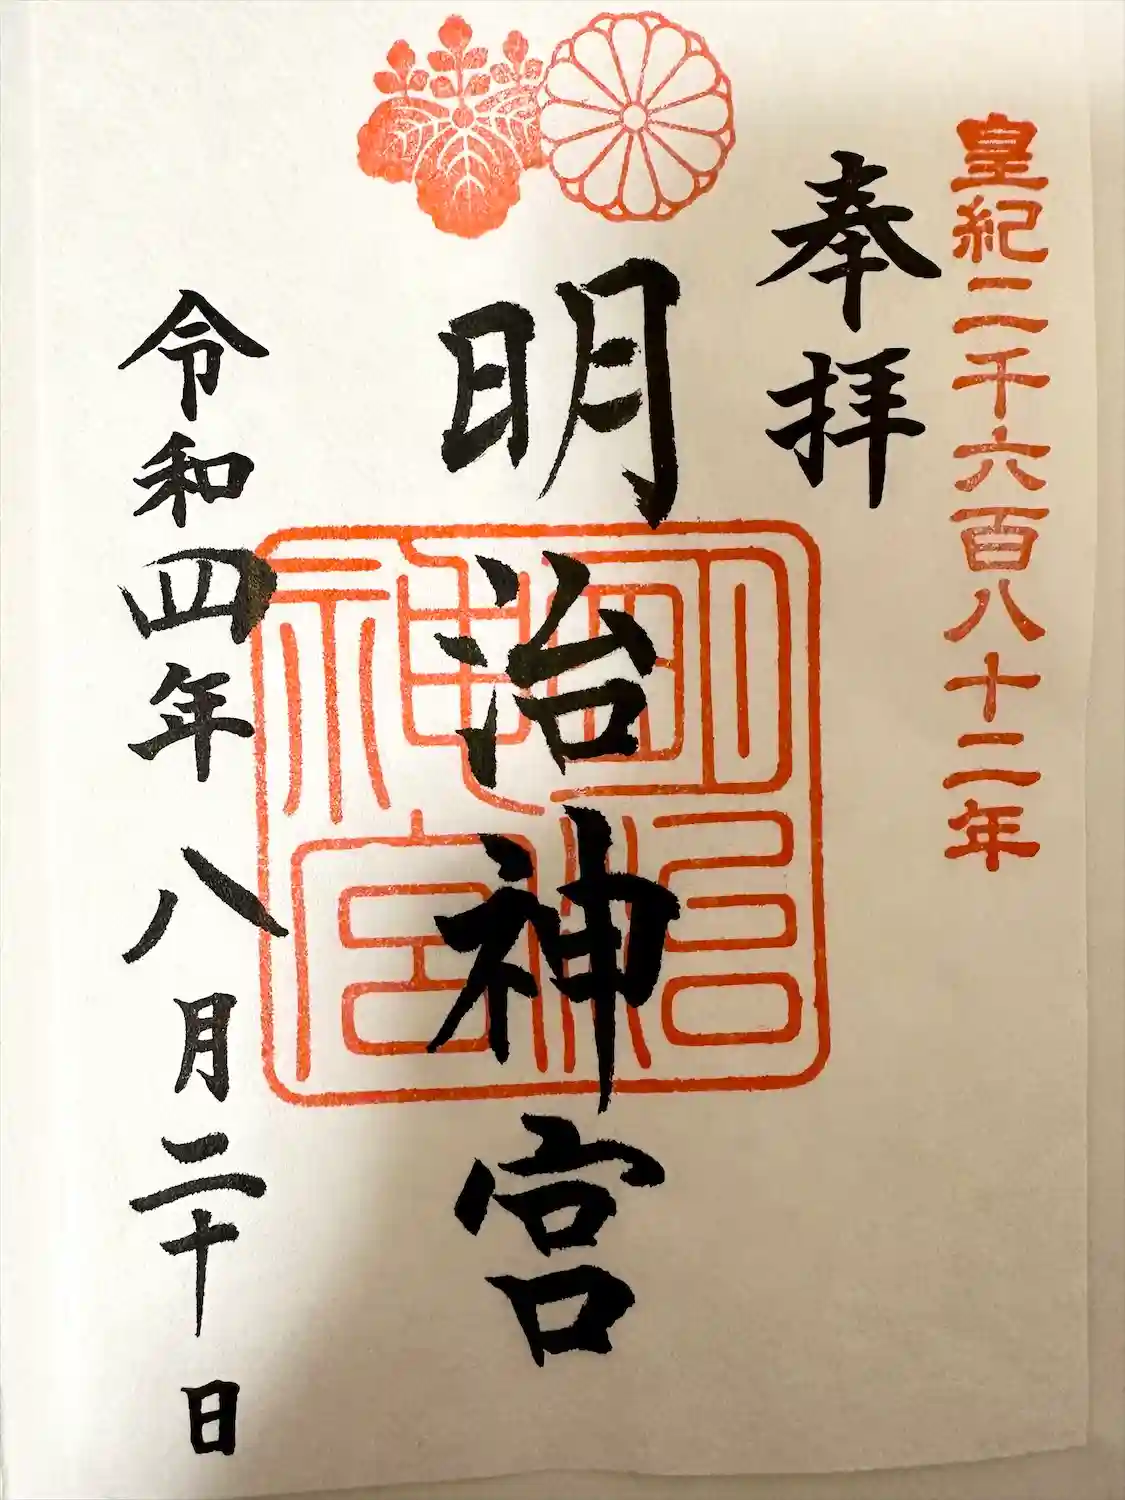 皇紀二千六百八十二年
奉拝
明治神宮
明治神宮
令和四年八月二十日